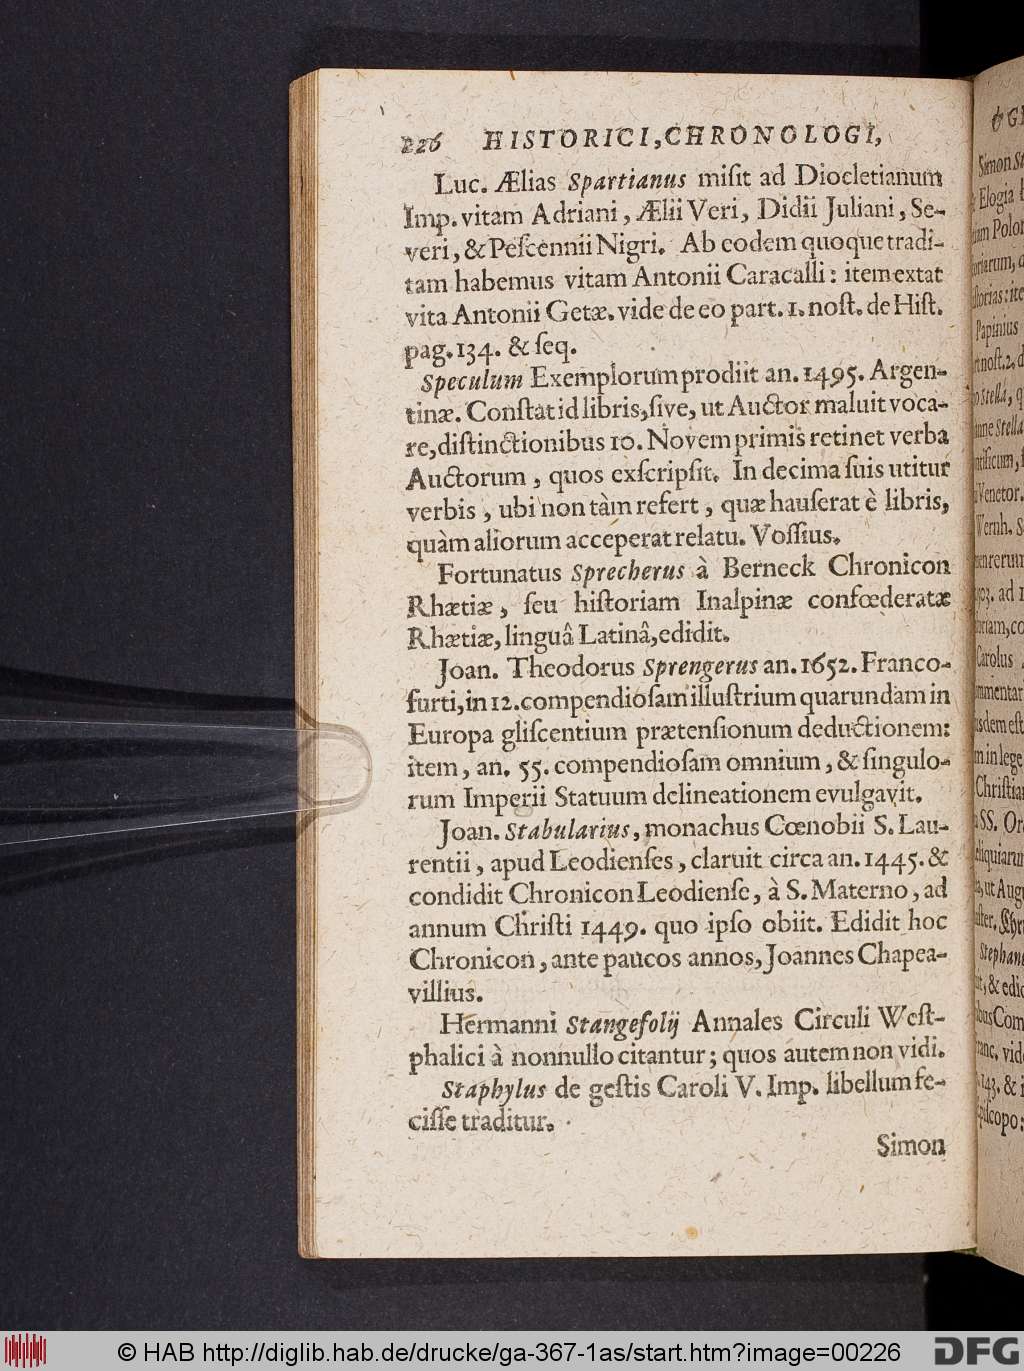 226 HISTORICI, CHRONOLOGI,
Luc. Ælias Spartianus miſit ad Diocletianum
Imp. vitam Adriani, Ælii Veri, Didii Juliani, Se-
veri, & Peſcennii Nigri. Ab eodem quoque tradi-
tam habemus vitam Antonii Caracalli: item extat
vita Antonii Getæ. vide de eo part. 1. noſt. de Hiſt.
pag. 134. & ſeq.
Speculum Exemplorum prodiit an. 1495. Argen-
tinæ. Conſtat id libris, ſive, ut Auctor maluit voca-
re, diſtinctionibus 10. Novem primis retinet verba
Auctorum, quos exſcripſit. In decima ſuis utitur
verbis, ubi non tàm refert, quæ hauſerat è libris,
quàm aliorum acceperat relatu. Voſſius.
Fortunatus Sprecherus à Berneck Chronicon
Rhætiæ, ſeu hiſtoriam Inalpinæ confœderatæ
Rhætiæ, linguâ Latinâ, edidit.
Joan. Theodorus Sprengerus an. 1652. Franco-
furti, in 12. compendioſam illuſtrium quarundam in
Europa gliſcentium prætenſionum deductionem:
item, an. 55. compendioſam omnium, & ſingulo-
rum Imperii Statuum delineationem evulgavit.
Joan. Stabularius, monachus Cœnobii S. Lau-
rentii, apud Leodienſes, claruit circa an. 1445. &
condidit Chronicon Leodienſe, à S. Materno, ad
annum Chriſti 1449. quo ipſo obiit. Edidit hoc
Chronicon, ante paucos annos, Joannes Chapea-
villius.
Hermanni Stangefolij Annales Circuli Weſt-
phalici à nonnullo citantur; quos autem non vidi.
Staphylus de geſtis Caroli V. Imp. libellum fe-
ciſſe traditur.
Simon
& GE
Simon St
Elogia
Polon
Papinius
noſt. 2. d
Stella, q
Stella
Venetor.
Wernh.
ad 1
Carolus
in lege
Chriſtian
SS. Or
ut Aug
Stephan
& edic
vide
143. & i
© HAB http://diglib.hab.de/drucke/ga-367-1as/start.htm?image=00226
DFG